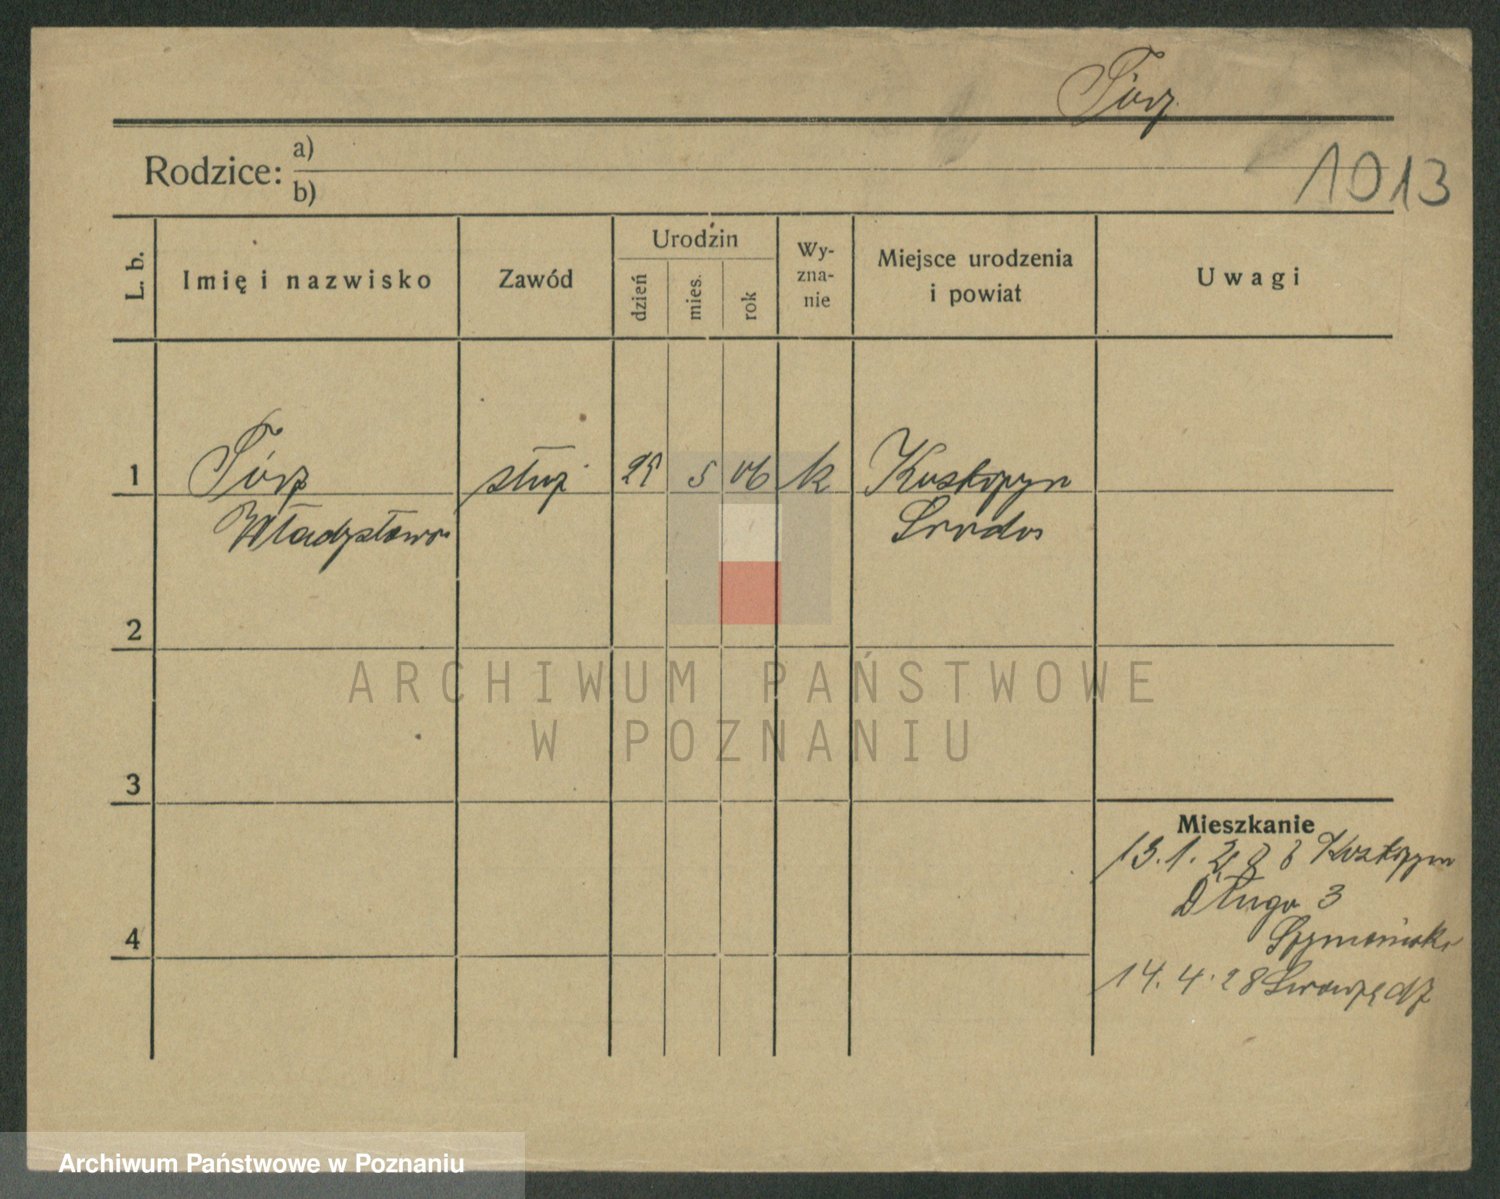 Tórz
1013
Rodzice: a)
b)
L. b.
Imię i nazwisko
Zawód
Urodzin
dzień
mies.
rok
Wy-
zna-
nie
Miejsce urodzenia
i powiat
Uwagi
1
Tórz
służ.
25
5
06
k
Władysława
Środa
2
ARCHIWUM PAŃSTWOWE
W POZNANIU
3
Mieszkanie
13.1.28
Długa 3
4
14.4.28
Archiwum Państwowe w Poznaniu